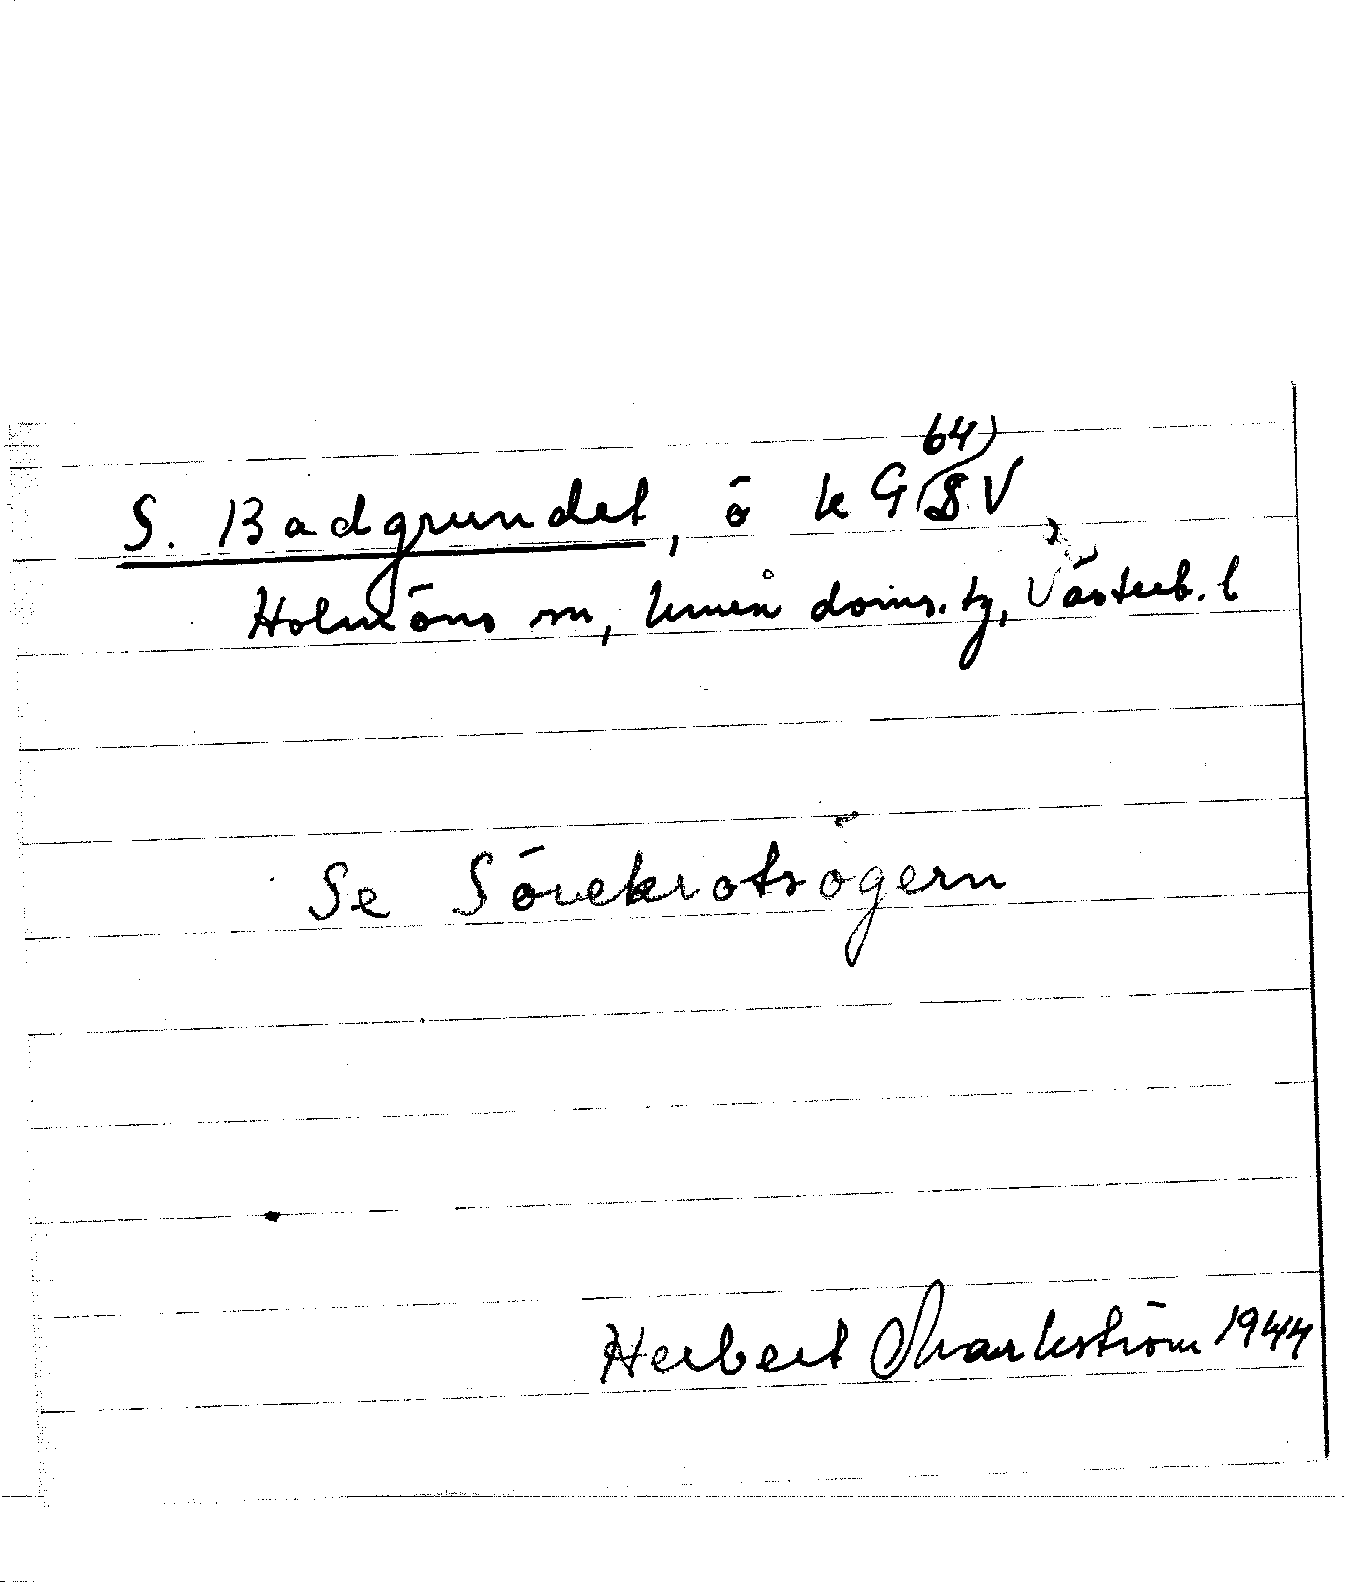 S. Badgrundet, ö k G 64) S V,
Holmöns sn, Umeå doms. tg, Västerb. l
Se Sörekrotsögern
Herbert Markström 1944